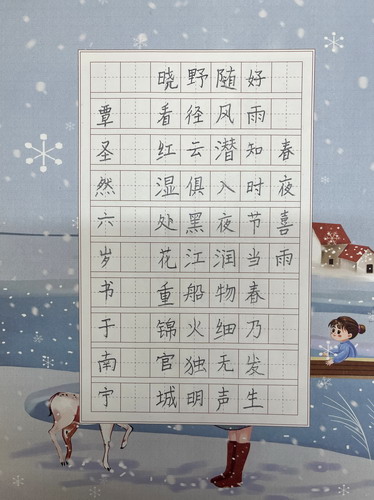 春夜喜雨
好雨知时节当春乃发生
随风潜入夜润物细无声
野径云俱黑江船火独明
晓看红湿处花重锦官城
覃圣然六岁书于南宁